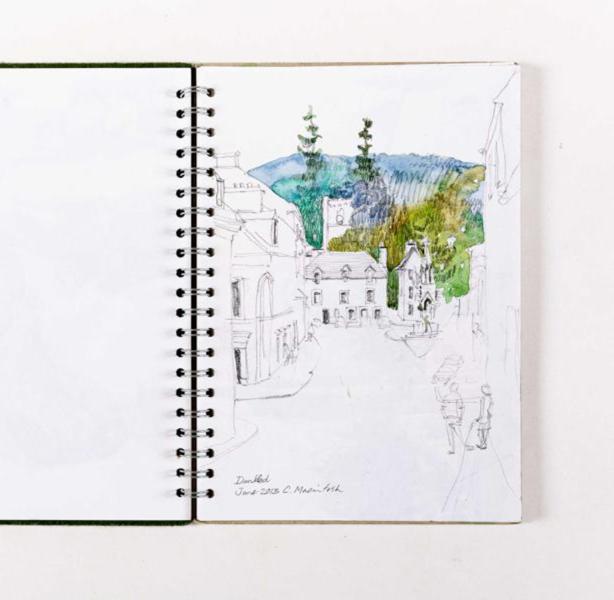 Dunkeld
June 2013 C. Macintosh